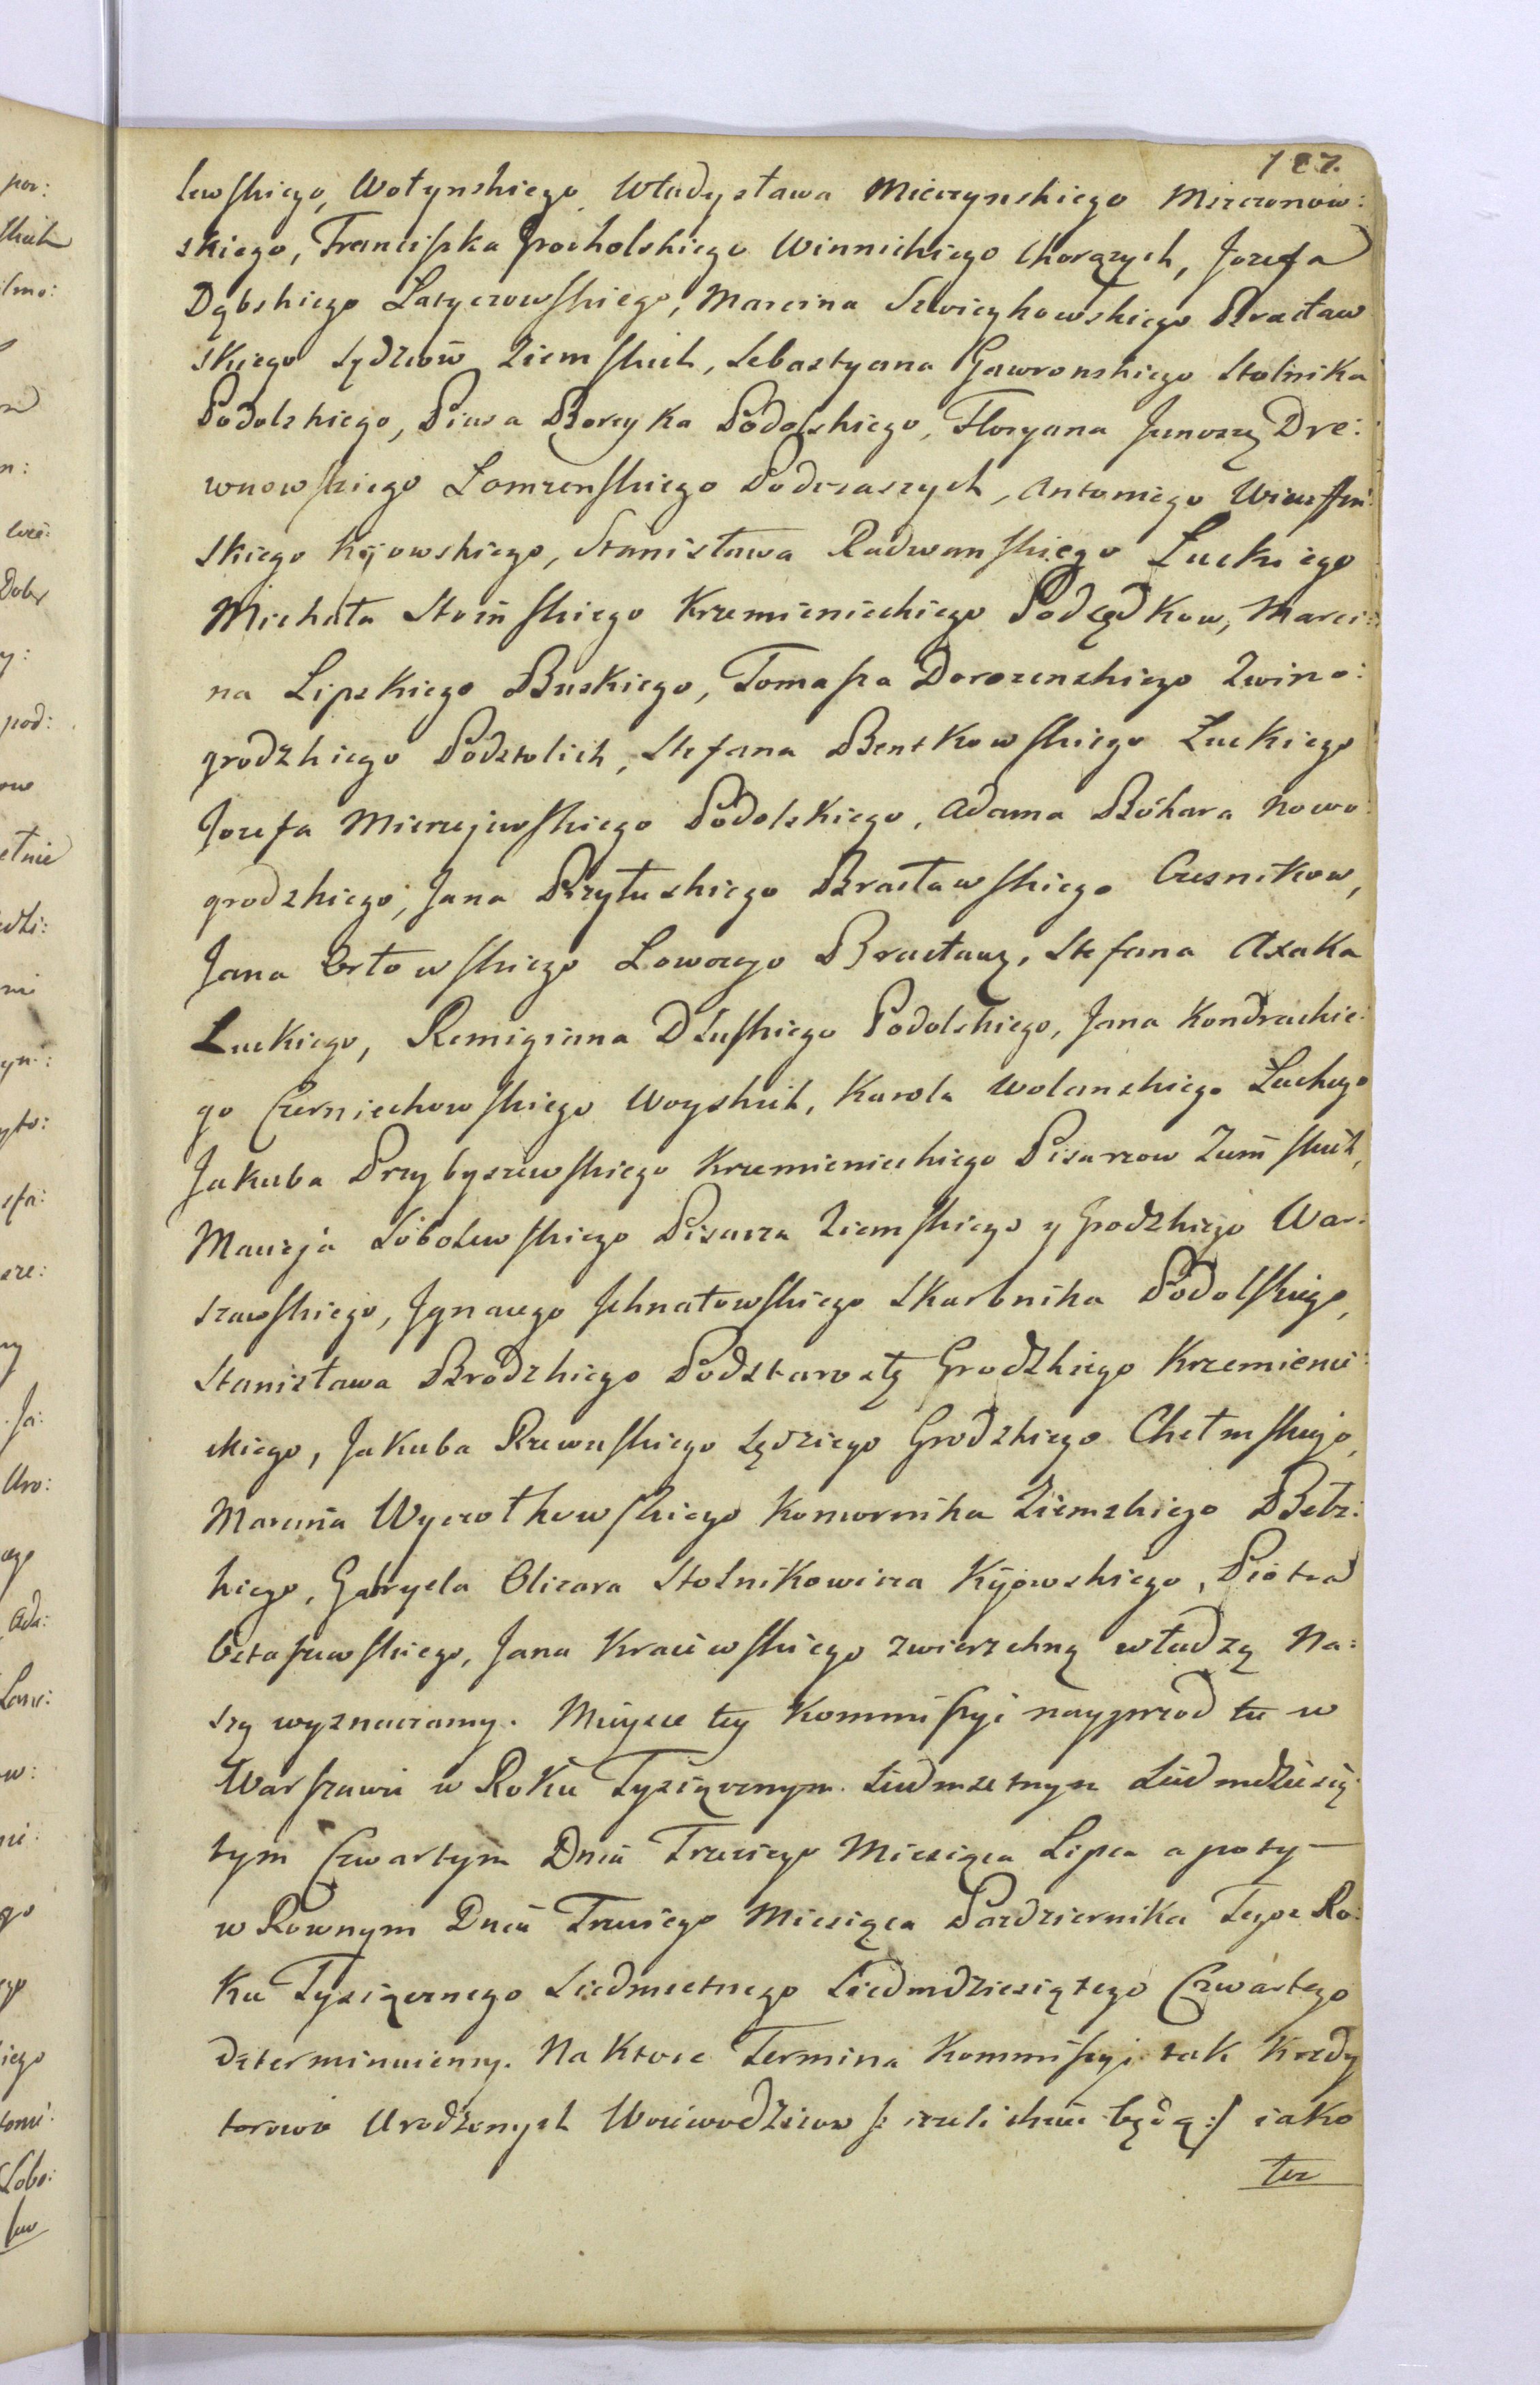 187.
lewskiego, Wołynskiego, Władysława Mierzynskiego Mszczonow:
skiego, Franciszka Grocholskiego Winnickiego Chorązych, Jozefa
Dąbskiego Latyczowskiego, Marcina Szwieykowskiego Bracław
skiego Sędziow Ziemskich, Sebastyana Gawronskiego Stolnika
Podolskiego, Piusa Boreyka Podolskiego, Floryana Junoszy Dre:
wnowskiego Lomzenskiego Podczaszych, Antoniego
skiego Kijowskiego, Stanisława Radwanskiego Łuckiego
Michała Stoinskiego Krzemienieckiego Podsędkow, Marci:
na Lipskiego Buskiego, Tomasza Dorozenskiego Zwino:
grodzkiego Podstolich, Stefana Bentkowskiego Łuckiego
Jozefa Mierzejewskiego Podolskiego, Adama Bohara Nowo
grodzkiego, Jana Przyłuskiego Bracławskiego Czesnikow,
Jana Orłowskiego Lowczego Bracławs, Stefana Axaka
Łuckiego, Remigiana Dłuskiego Podolskiego, Jana Kondrackie:
go Czerniechowskiego Woyskich, Karola Wolanskiego Łuckiego
Jakuba Przybyszewskiego Krzemienieckiego Pisarzow Ziemskich,
Macieja Sobolewskiego Pisarza Ziemskiego y Grodzkiego War:
szawskiego, Jgnacego Jchnatowskiego Skarbnika Podolskiego,
Stanisława Brodzkiego Podstarostę Grodzkiego Krzemienie:
ckiego, Jakuba Rzewuskiego Sędziego Grodzkiego Chełmskiego,
Marcina Wyczołkowskiego Komornika Ziemskiego Bełz:
kiego, Gabryela Olizara Stolnikowicza Kijowskiego, Piotra
Ostaszewskiego, Jana Kraiewskiego zwierzchną władzą Na:
szą wyznaczamy. Mieysce tey Kommissyi nayprzod tu w
Warszawie w Roku Tysiącznym Siedmsetnym Siedmdziesią:
tym Czwartym Dnia Trzeciego Miesiąca Lipca a poty
w Rownym Dnia Trzeciego Miesiąca Pazdziernika Tegoz Ro:
ku Tysiącznego Siedmsetnego Siedmdziesiątego Czwartego
determinuiemy. Na Ktore Termina Kommissyi tak Kredy
torowie Urodzonych Woiewodzicow /: iezeli chcieć będą :/ iako
tez